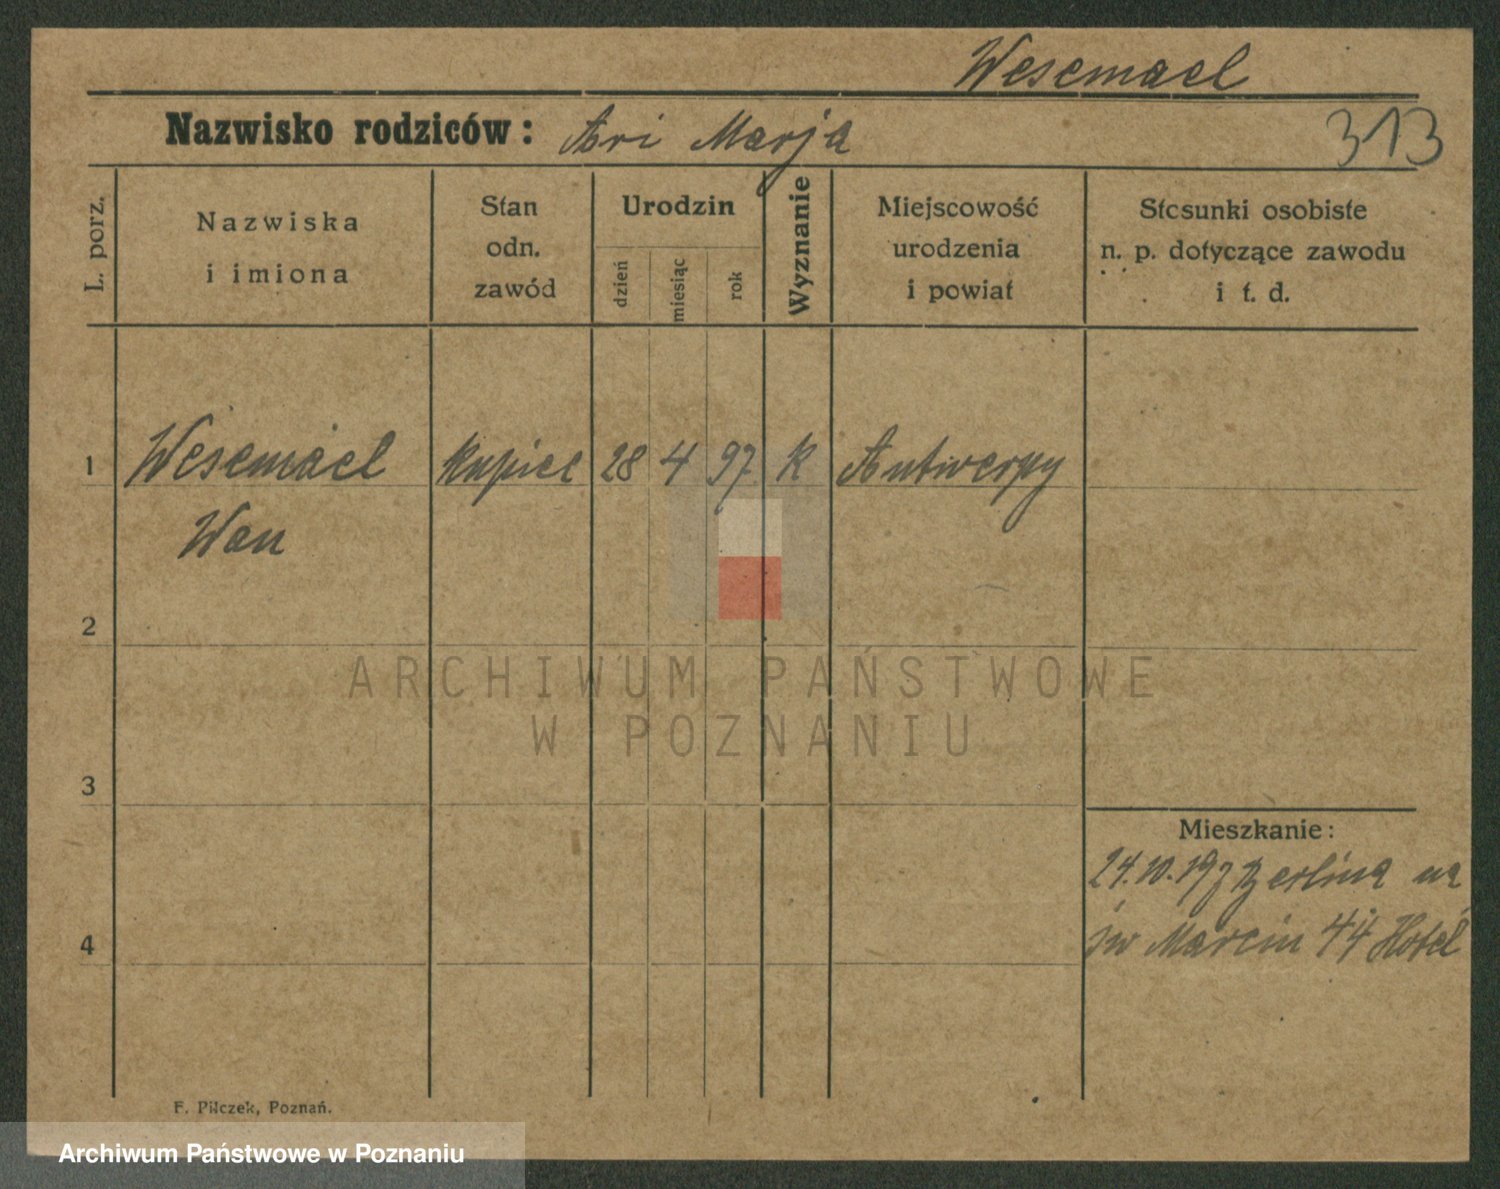 Wesemael
Nazwisko rodziców: Ari Marja
313
L. porz.
Nazwiska
i imiona
Stan
odn.
zawód
Urodzin
dzień
miesiąc
rok
Wyznanie
Miejscowość
urodzenia
i powiat
Stosunki osobiste
n. p. dotyczące zawodu
i t. d.
1 Wesemael kupiec 28 4 97 k Antwerpy
Wan
2
ARCHIWUM PAŃSTWOWE
W POZNANIU
3
Mieszkanie:
24.10.19 z Berlina na
4
św Marcin 44 Hotel
F. Pilczek, Poznań.
Archiwum Państwowe w Poznaniu